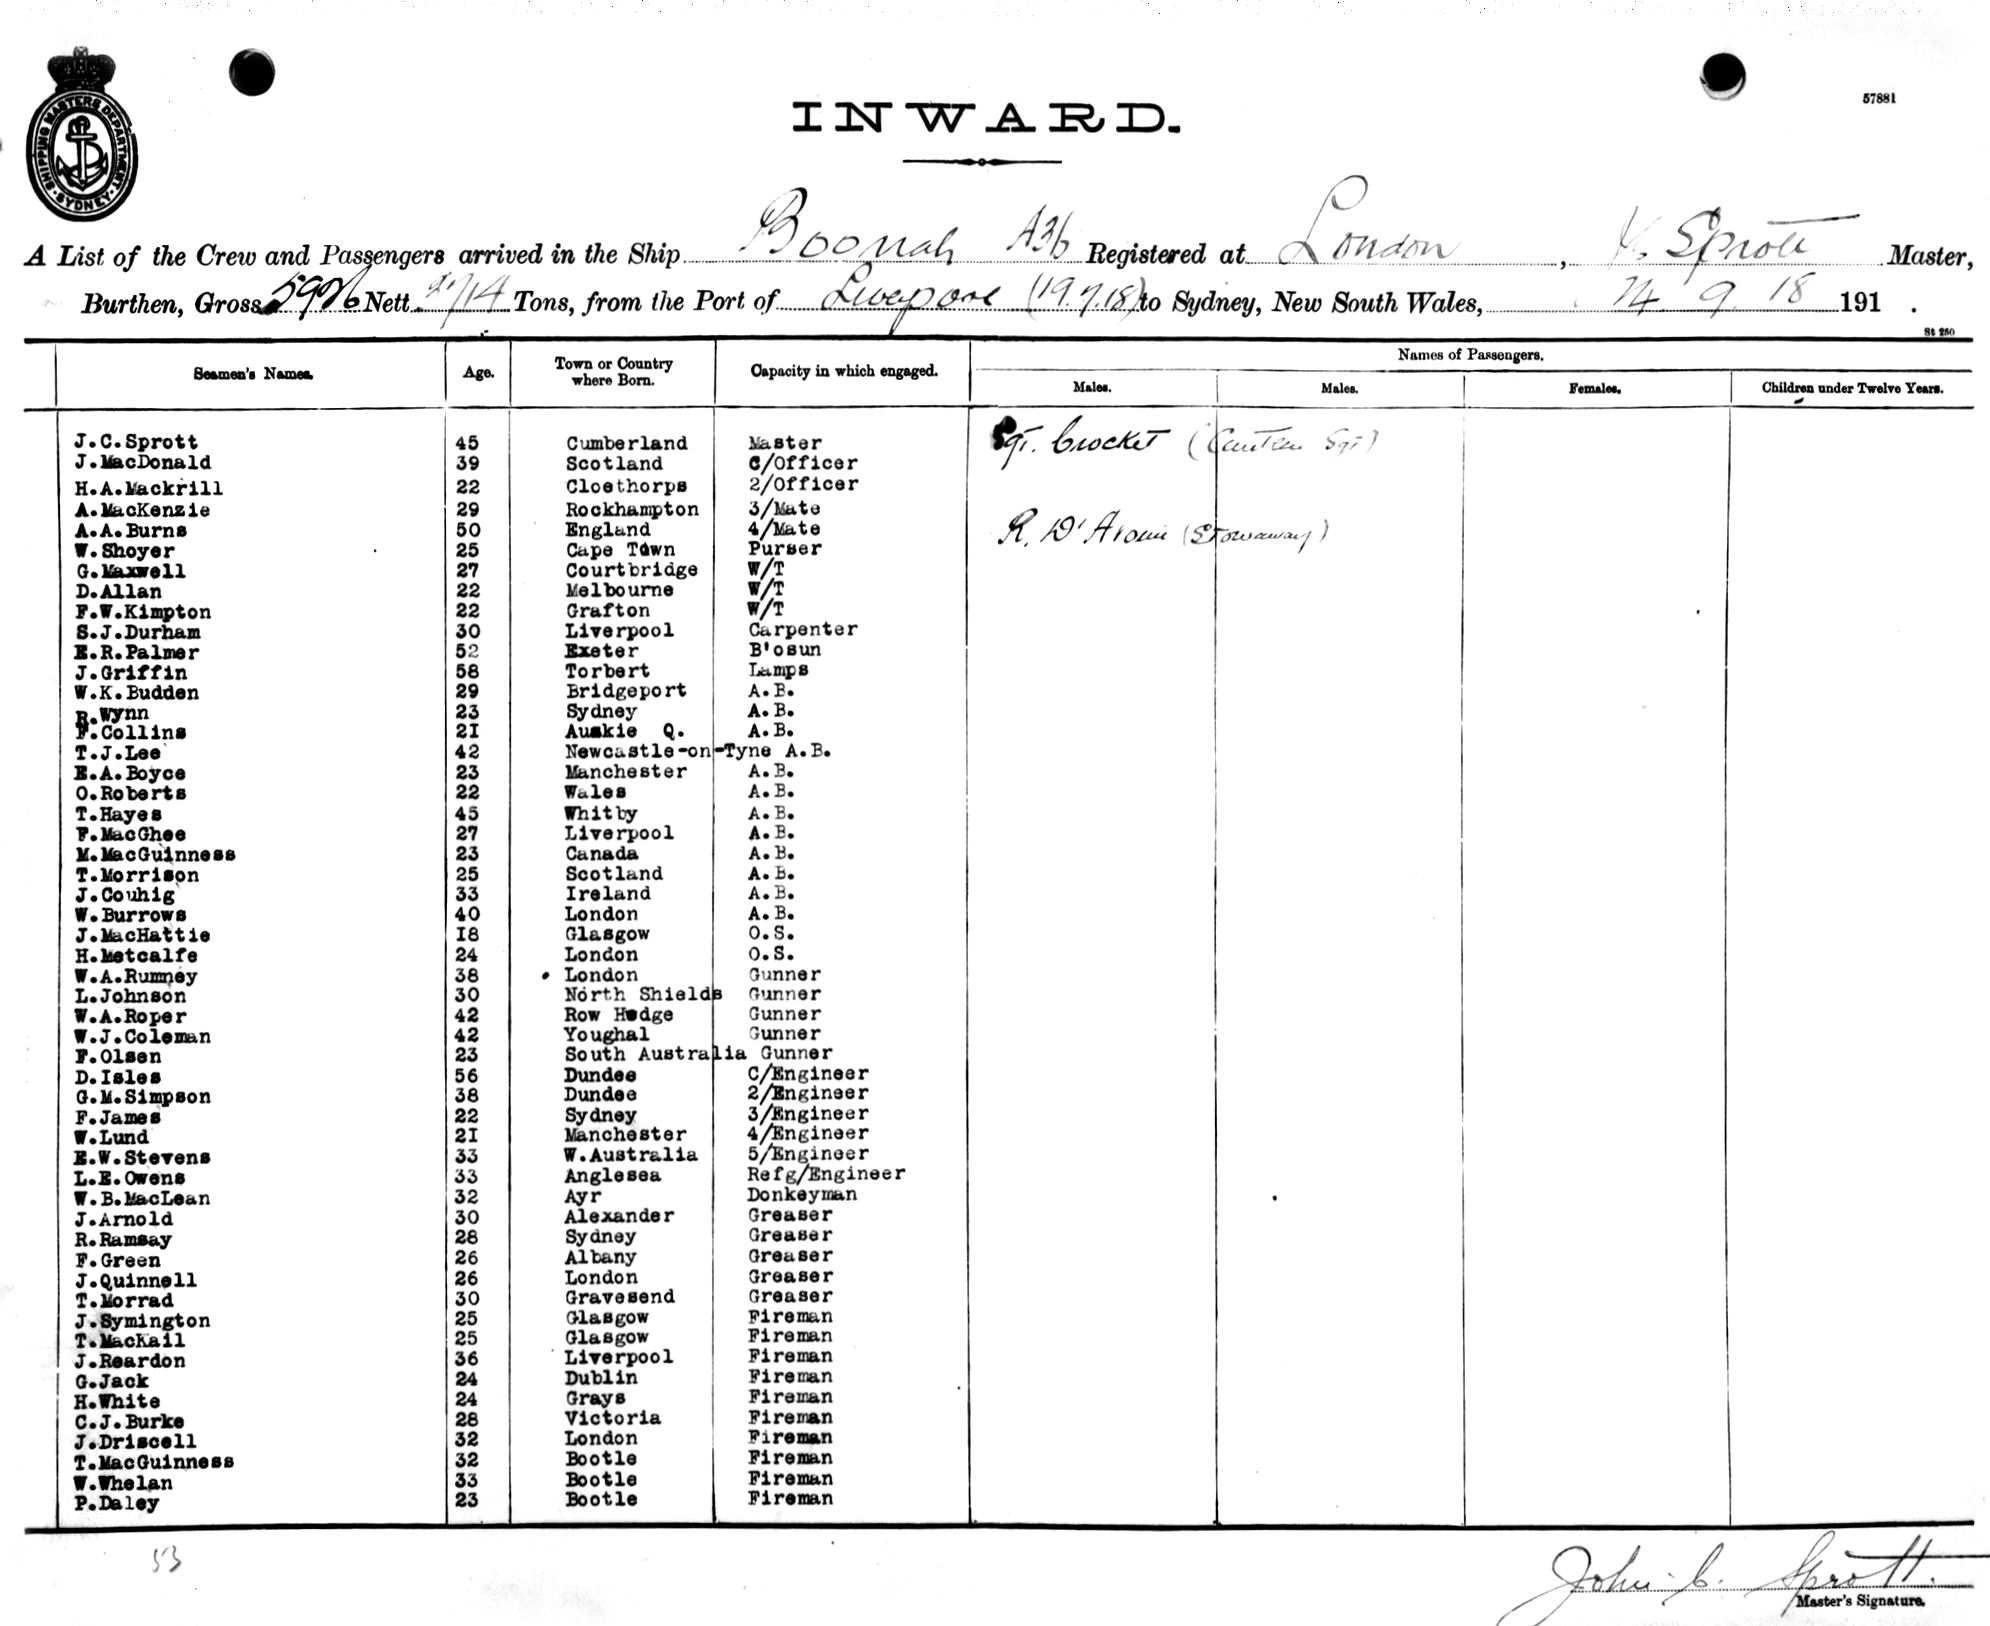 SHIPPING MASTERS DEPARTMENT
SYDNEY
57881
INWARD.
A List of the Crew and Passengers arrived in the Ship Boonah A36 Registered at London, Sprott Master,
Burthen, Gross 5926 Nett 2714 Tons, from the Port of Liverpool (19.7.18) to Sydney, New South Wales, 14 9. 18 191 .
St 250
Seamen's Names. Age. Town or Country where Born. Capacity in which engaged. Names of Passengers.
Males. Males. Females. Children under Twelve Years.
J.C.Sprott 45 Cumberland Master Sgt. Crocket (Canteen Sgt)
J.MacDonald 39 Scotland C/Officer
H.A.Mackrill 22 Cloethorps 2/Officer
A.MacKenzie 29 Rockhampton 3/Mate
A.A.Burns 50 England 4/Mate R. D' (Stowaway)
W.Shoyer 25 Cape Town Purser
G.Maxwell 27 Courtbridge W/T
D.Allan 22 Melbourne W/T
F.W.Kimpton 22 Grafton W/T
S.J.Durham 30 Liverpool Carpenter
E.R.Palmer 52 Exeter B'osun
J.Griffin 58 Torbert Lamps
W.K.Budden 29 Bridgeport A.B.
R.Wynn 23 Sydney A.B.
F.Collins 2I Auskie Q. A.B.
T.J.Lee 42 Newcastle-on-Tyne A.B.
E.A.Boyce 23 Manchester A.B.
O.Roberts 22 Wales A.B.
T.Hayes 45 Whitby A.B.
F.MacGhee 27 Liverpool A.B.
M.MacGuinness 23 Canada A.B.
T.Morrison 25 Scotland A.B.
J.Couhig 33 Ireland A.B.
W.Burrows 40 London A.B.
J.MacHattie I8 Glasgow O.S.
H.Metcalfe 24 London O.S.
W.A.Rumney 38 London Gunner
L.Johnson 30 North Shields Gunner
W.A.Roper 42 Row Hedge Gunner
W.J.Coleman 42 Youghal Gunner
F.Olsen 23 South Australia Gunner
D.Isles 56 Dundee C/Engineer
G.M.Simpson 38 Dundee 2/Engineer
F.James 22 Sydney 3/Engineer
W.Lund 2I Manchester 4/Engineer
E.W.Stevens 33 W.Australia 5/Engineer
L.E.Owens 33 Anglesea Refg/Engineer
W.B.MacLean 32 Ayr Donkeyman
J.Arnold 30 Alexander Greaser
R.Ramsay 28 Sydney Greaser
F.Green 26 Albany Greaser
J.Quinnell 26 London Greaser
T.Morrad 30 Gravesend Greaser
J.Symington 25 Glasgow Fireman
T.MacKail 25 Glasgow Fireman
J.Reardon 36 Liverpool Fireman
G.Jack 24 Dublin Fireman
H.White 24 Grays Fireman
C.J.Burke 28 Victoria Fireman
J.Driscell 32 London Fireman
T.MacGuinness 32 Bootle Fireman
W.Whelan 33 Bootle Fireman
P.Daley 23 Bootle Fireman
53
John C. Sprott.
Master's Signature.